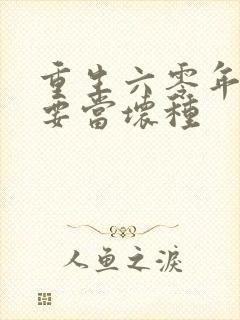 重生六零年
要當壞種
人鱼之淚